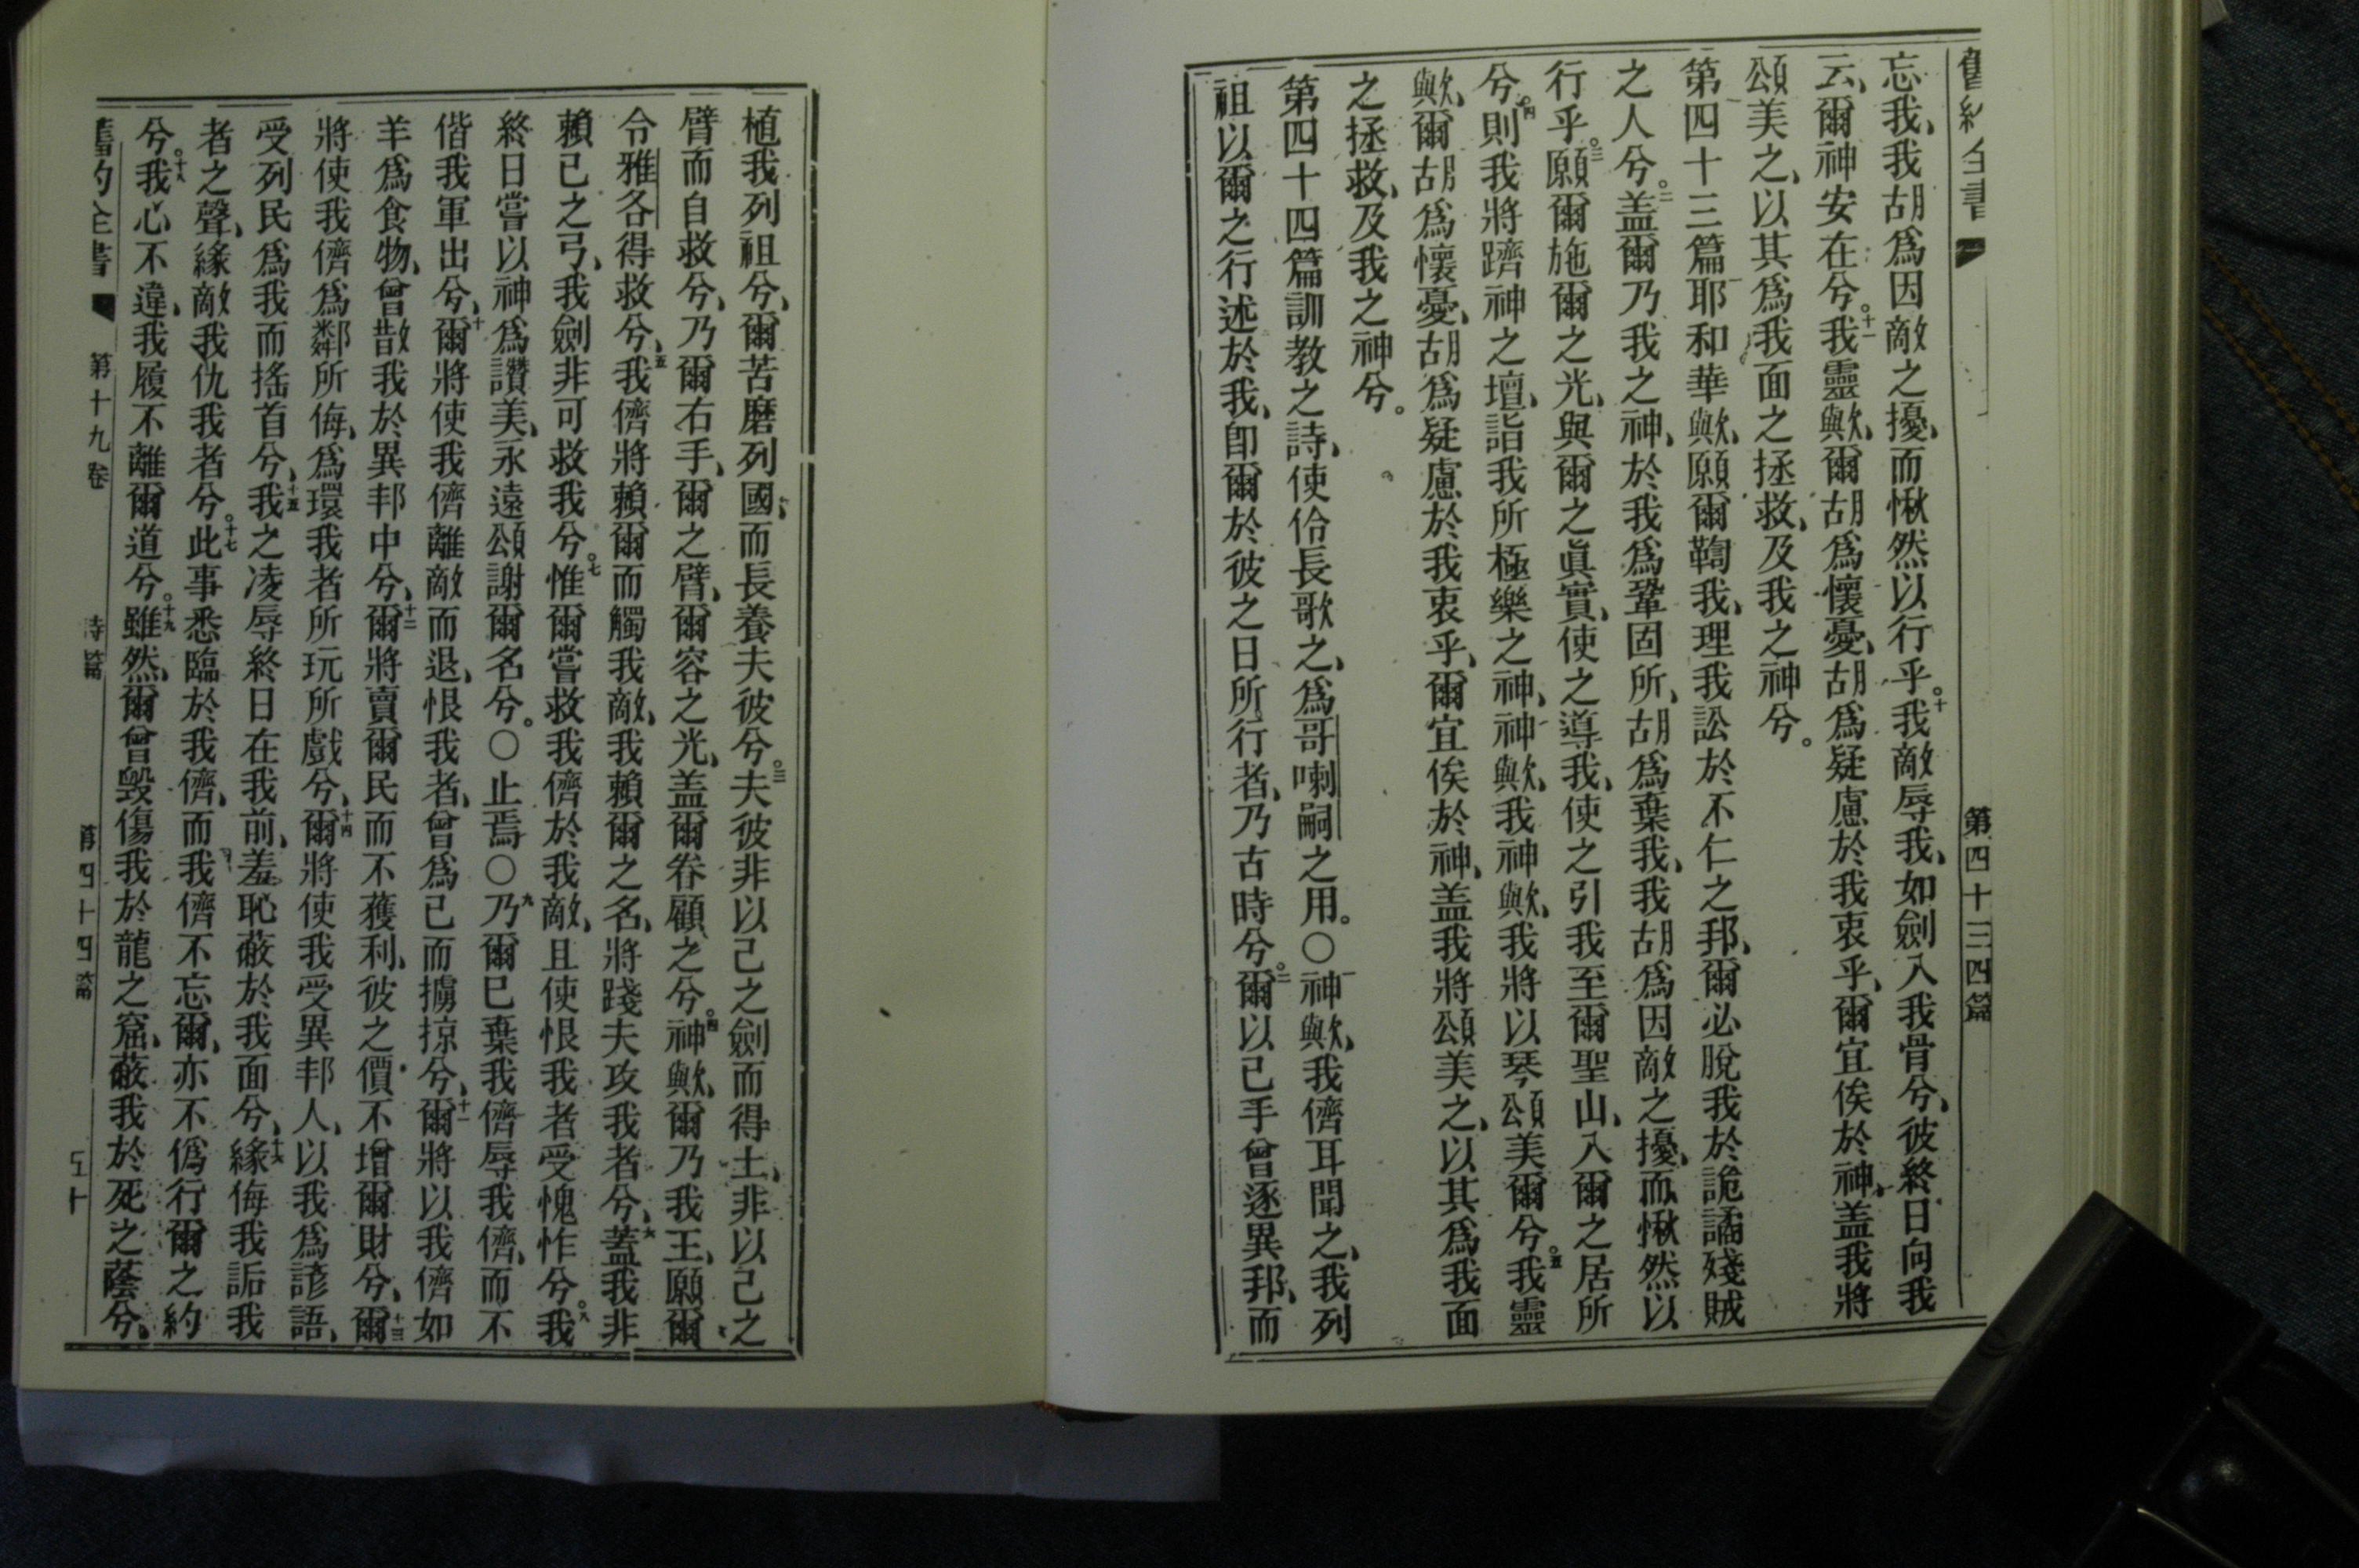 舊約全書 第四十三四篇
忘我、我胡爲因敵之擾、而愀然以行乎。十我敵辱我、如劍入我骨兮、彼終日向我
云、爾神安在兮。十一我靈歟、爾胡爲懷憂、胡爲疑慮於我衷乎、爾宜俟於神、盖我將
頌美之、以其爲我面之拯救、及我之神兮。
第四十三篇一耶和華歟、願爾鞫我、理我訟於不仁之邦、爾必脫我於詭譎殘賊
之人兮。二盖爾乃我之神、於我爲鞏固所、胡爲棄我、我胡爲因敵之擾、而愀然以
行乎。三願爾施爾之光、與爾之眞實、使之導我、使之引我至爾聖山、入爾之居所
兮。四則我將躋神之壇、詣我所極樂之神、神歟、我神歟、我將以琴頌美爾兮。五我靈
歟、爾胡爲懷憂、胡爲疑慮於我衷乎、爾宜俟於神、盖我將頌美之、以其爲我面
之拯救、及我之神兮。
第四十四篇訓教之詩、使伶長歌之、爲哥喇嗣之用。〇一神歟、我儕耳聞之、我列
祖以爾之行述於我、卽爾於彼之日所行者、乃古時兮。二爾以己手曾逐異邦、而
植我列祖兮、爾苦磨列國、而長養夫彼兮。三夫彼非以己之劍而得土、非以己之
臂而自救兮、乃爾右手、爾之臂、爾容之光、盖爾眷顧之兮。四神歟、爾乃我王、願爾
令雅各得救兮、五我儕將賴爾而觸我敵、我賴爾之名、將踐夫攻我者兮、六蓋我非
賴己之弓、我劍非可救我兮。七惟爾嘗救我儕於我敵、且使恨我者受愧怍兮。八我
終日嘗以神爲讚美、永遠頌謝爾名兮。〇止焉〇九乃爾已棄我儕、辱我儕、而不
偕我軍出兮、十爾將使我儕離敵而退、恨我者、曾爲己而擄掠兮、十一爾將以我儕如
羊爲食物、曾散我於異邦中兮、十二爾將賣爾民而不獲利、彼之價不增爾財兮、十三爾
將使我儕爲鄰所侮、爲環我者所玩所戲兮、十四爾將使我受異邦人、以我爲諺語、
受列民爲我而搖首兮、十五我之凌辱終日在我前、羞恥蔽於我面兮、十六緣侮我詬我
者之聲、緣敵我仇我者兮。十七此事悉臨於我儕、而我儕不忘爾、亦不僞行爾之約
兮。十八我心不違、我履不離爾道兮。十九雖然、爾曾毀傷我於龍之窟、蔽我於死之蔭兮、
舊約全書 第十九卷 詩篇 第四十四篇 五十